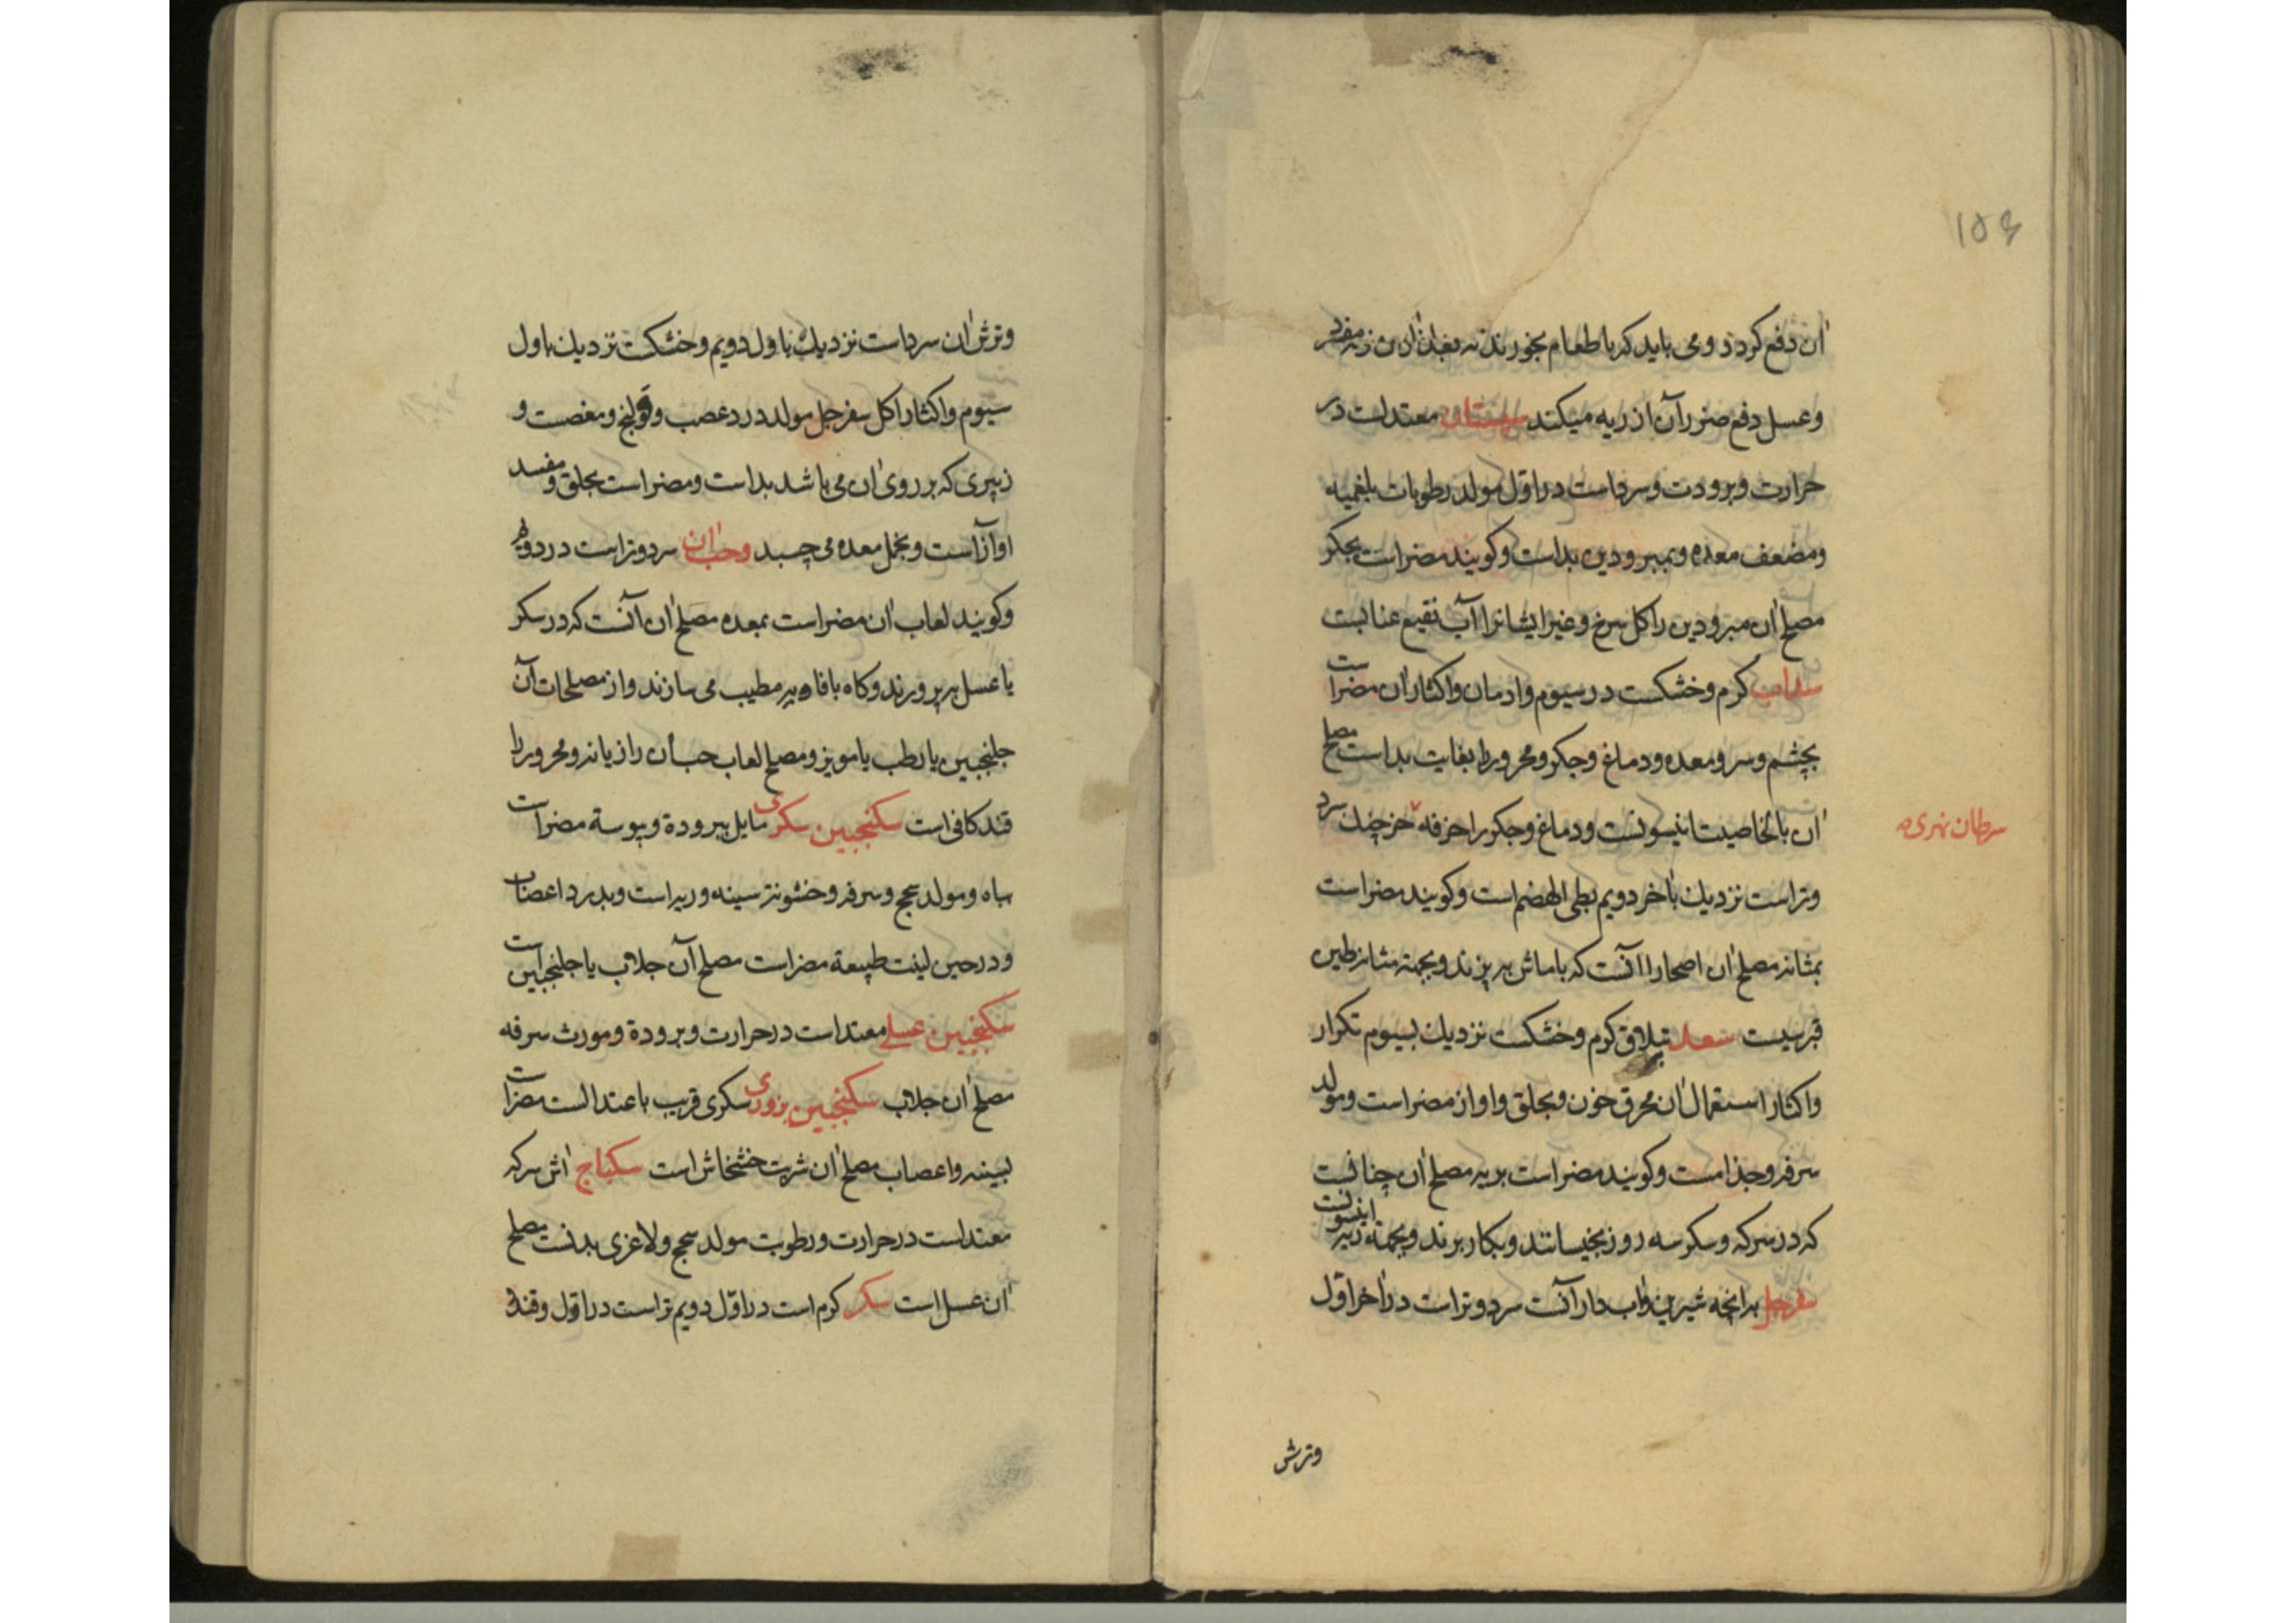 ۱۵۳
آن دفع کردد و می باید که با طعام بخورند نه مفرد
وعسل دفع ضرر آن از ریه میکند سپستان معتدلست در
حرارت وبرودت وسرداست در اول مولد رطوبات بلغمیه
ومضعف معده وبمبرودین بداست وکویند مضراست بجکر
مصلح آن مبرودین را کل سرخ وغیر ایشانرا آب نقیع عنابست
سداب کرم وخشکست در سیوم وادمان واکثار آن مضراست
بچشم وسر ومعده ودماغ وجکر ومحرور را بغایت بداست مصلح
آن بالخاصیت انیسونست ودماغ وجکر را خرفه سرد
سرطان نهری
وتراست نزدیك باخر دویم بطی الهضم است وکویند مضراست
بمثانه مصلح آن اصحا را آنست که با ماش بپزند وبجهة مثانه طین
قبرسیست سعد کرم وخشکست نزدیك بسیوم تکرار
واکثار استعمال آن محرق خون وبحلق واواز مضراست ومولد
سرفه وجذامست وکویند مضراست بریه مصلح آن چنانست
که در سرکه وسکر سه روز بخیسانند وبکار برند وبجهة ریه انیسونست
سفرجل به آنچه شیرین واب دار آنست سرد وتراست در آخر اول
وترش
وترش آن سرداست نزدیك باول دویم وخشکست نزدیك باول
سیوم واکثار اکل سفرجل مولد درد عصب وقولنج ومغصست و
زبیری که بر روی آن می باشد بداست ومضراست بحلق ومفسد
اوآزاست وبخمل معده می چسبد وحب آن سردوتراست در دویم
وکویند لعاب آن مضراست بمعده مصلح آن آنست که در سکر
یا عسل بپرورند وکاه بافاویه مطیب می سازند واز مصلحات آن
جلنجبین یا رطب یا مویز ومصلح لعاب حب آن رازیانه ومحرور را
قند کافی است سکنجبین سکری مایل ببرودة ویبوسة مضراست
بباه ومولد سحج وسرفه وخشونة سینه وریه است وبدرد اعصاب
ودرحین لینت طبیعة مضراست مصلح آن جلاب یا جلنجبین است
سکنجبین عسلی معتدلست در حرارت وبرودة ومورث سرفه
مصلح آن جلاب سکنجبین بزوری سکری قریب باعتدالست مضراست
بسینه واعصاب مصلح آن شربت خشخاش است سکباج آش سرکه
معتدلست در حرارت ورطوبت مولد سحج ولاغری بدنست مصلح
آن عسل است سکر کرم است در اول دویم تراست در اول وقند